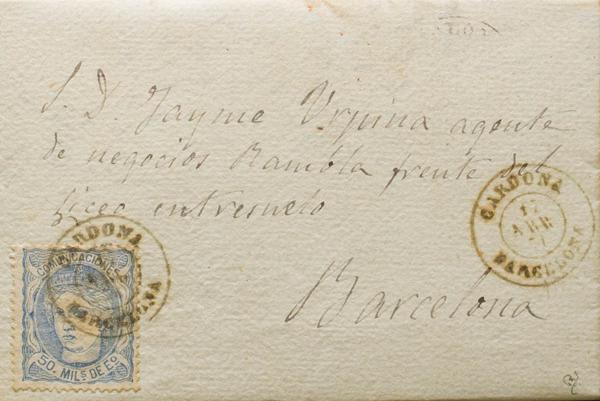 S. D. Jayme Urpina agente
de negocios Rambla frente del
Liceo entresuelo
Barcelona
CARDONA
17
ABR
BARCELONA
CARDONA
BARCELONA
COMUNICACIONES
50. MILS DE EO